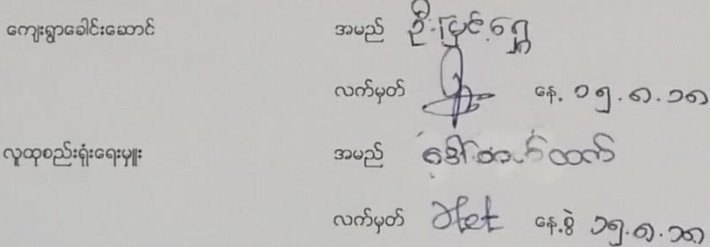 ကျေးရွာခေါင်းဆောင် အမည် ဦးမြင့်ရွှေ
လက်မှတ် နေ့. ၁၅.၈.၁၈
လူထုစည်းရုံးရေးမှူး အမည် ဒေါ် ထက်
လက်မှတ် Htet နေ့စွဲ ၁၅.၈.၁၈